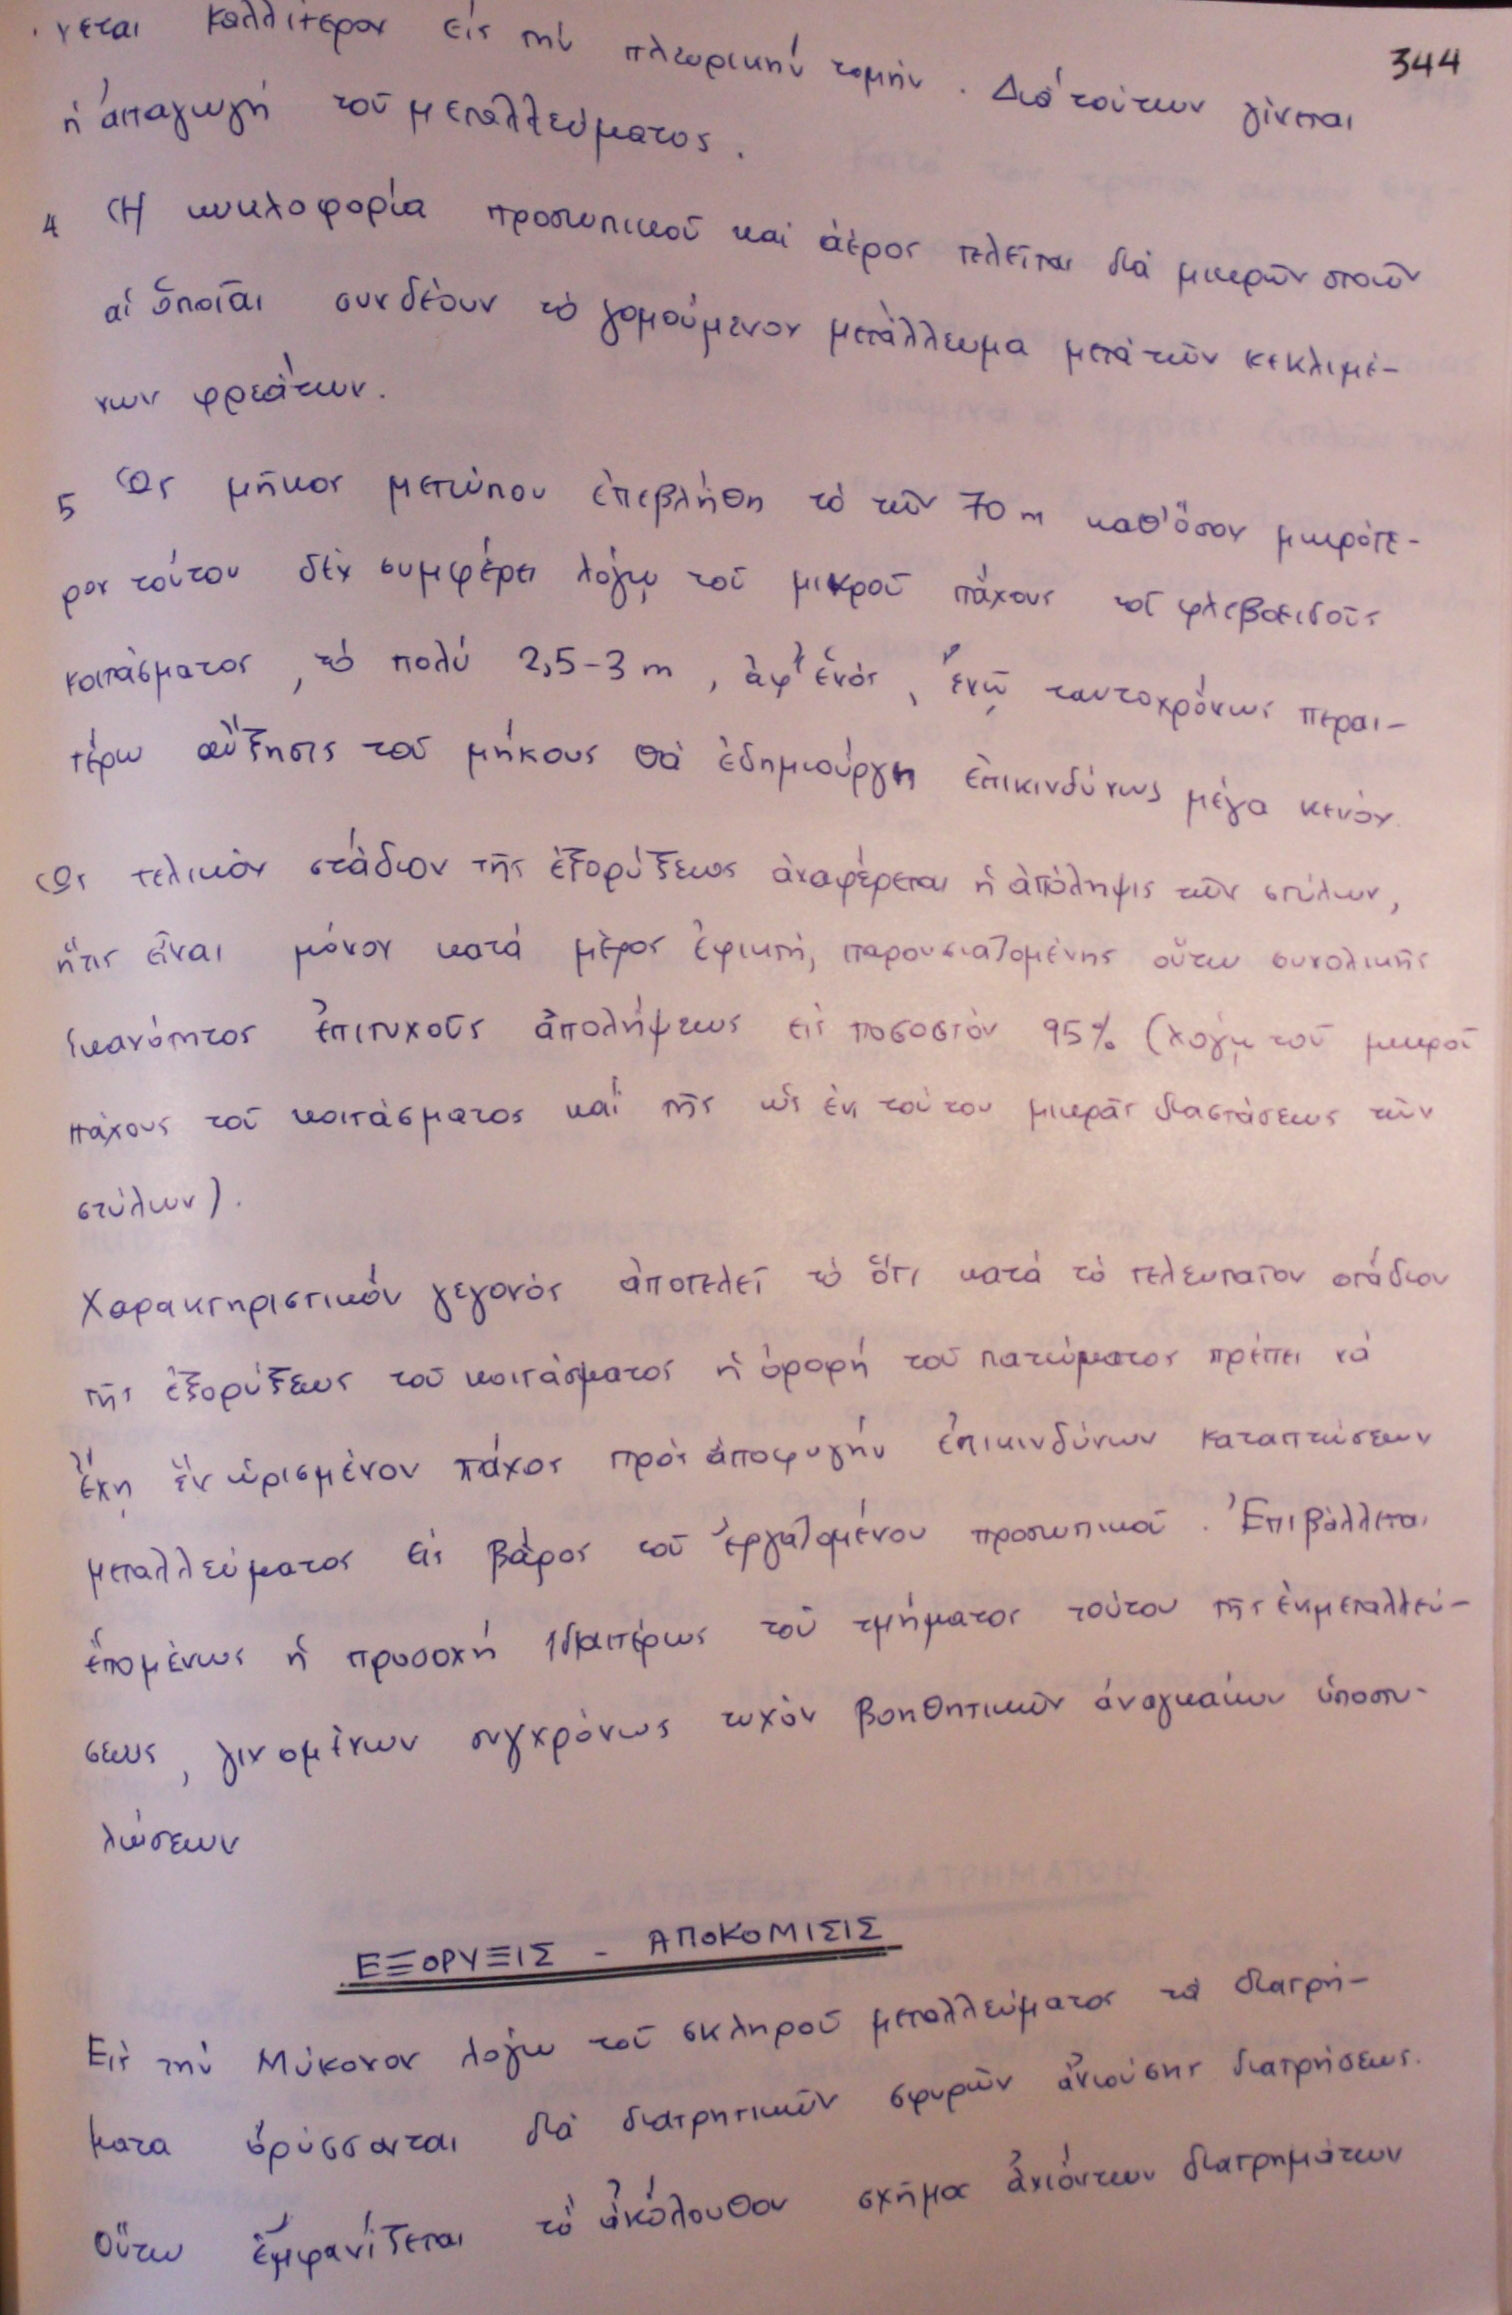 344
νεται καλλίτερον εἰς τήν πλευρικήν τομήν. Διά τούτων γίνεται
ἡ ἀπαγωγή τοῦ μεταλλεύματος.
4 Ἡ κυκλοφορία προσωπικοῦ καί ἀέρος τελεῖται διά μικρῶν στοῶν
αἱ ὁποῖαι συνδέουν τό γομούμενον μετάλλευμα μετά τῶν κεκλιμέ-
νων φρεάτων.
5 Ὡς μῆκος μετώπου ἐπεβλήθη τό τῶν 70 m καθ' ὅσον μικρότε-
ρον τούτου δέν συμφέρει λόγῳ τοῦ μικροῦ πάχους τοῦ φλεβοειδοῦς
κοιτάσματος, τό πολύ 2,5-3 m, ἀφ' ἑνός, ἐνῷ ταυτοχρόνως περαι-
τέρω αὔξησις τοῦ μήκους θά ἐδημιούργη ἐπικινδύνως μέγα κενόν.
Ὡς τελικόν στάδιον τῆς ἐξορύξεως ἀναφέρεται ἡ ἀπόληψις τῶν στύλων,
ἥτις εἶναι μόνον κατά μέρος ἐφικτή, παρουσιαζομένης οὕτω συνολικῆς
ἱκανότητος ἐπιτυχοῦς ἀπολήψεως εἰς ποσοστόν 95% (λόγῳ τοῦ μικροῦ
πάχους τοῦ κοιτάσματος καί τῆς ὡς ἐκ τούτου μικρᾶς διαστάσεως τῶν
στύλων).
Χαρακτηριστικόν γεγονός ἀποτελεῖ τό ὅτι κατά τό τελευταῖον στάδιον
τῆς ἐξορύξεως τοῦ κοιτάσματος ἡ ὀροφή τοῦ πατώματος πρέπει νά
ἔχῃ ἕν ὡρισμένον πάχος πρός ἀποφυγήν ἐπικινδύνων καταπτώσεων
μεταλλεύματος εἰς βάρος τοῦ ἐργαζομένου προσωπικοῦ. Ἐπιβάλλεται
ἑπομένως ἡ προσοχή ἰδιαιτέρως τοῦ τμήματος τούτου τῆς ἐκμεταλλεύ-
σεως, γινομένων συγχρόνως τυχόν βοηθητικῶν ἀναγκαίων ὑποστυ-
λώσεων
ΕΞΟΡΥΞΙΣ - ΑΠΟΚΟΜΙΣΙΣ
Εἰς τήν Μύκονον λόγω τοῦ σκληροῦ μεταλλεύματος τά διατρή-
ματα ὀρύσσονται διά διατρητικῶν σφυρῶν ἀνιούσης διατρήσεως.
Οὕτω ἐμφανίζεται τό ἀκόλουθον σχῆμα ἀνιόντων διατρημάτων